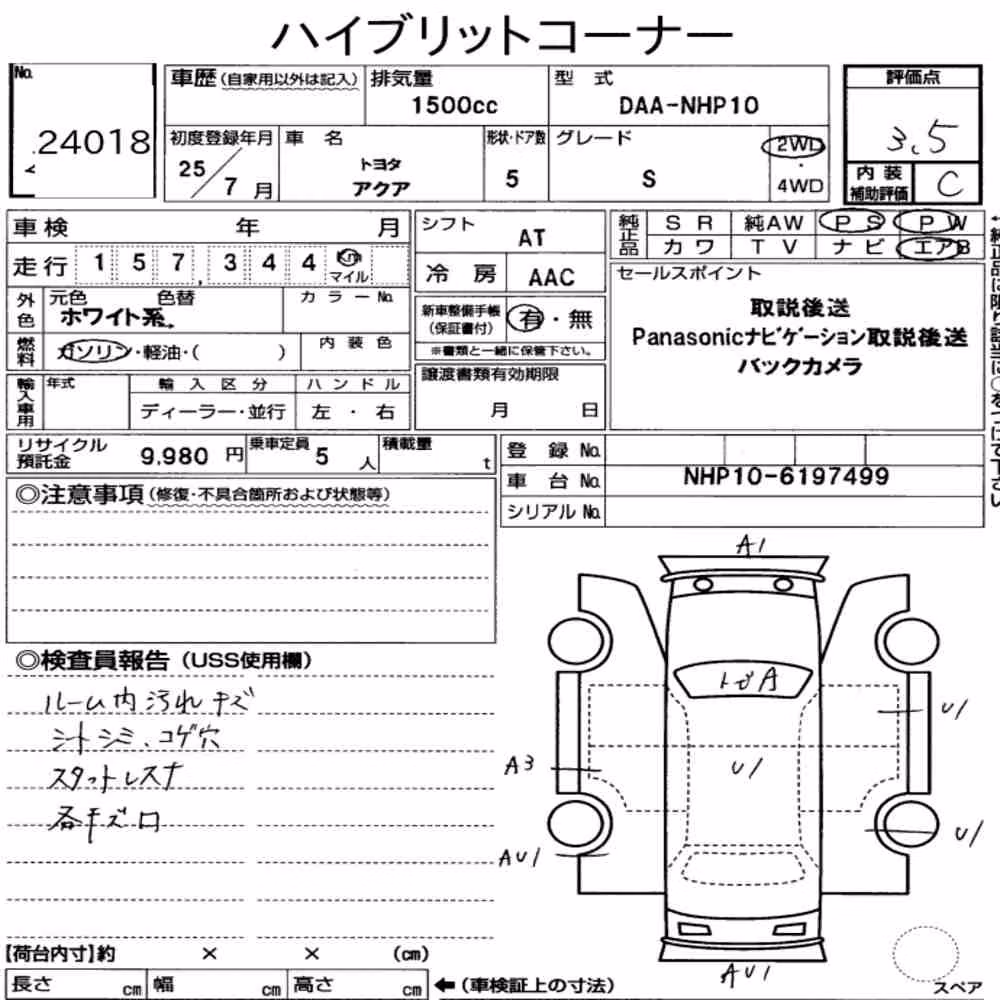 ハイブリットコーナー
No. 24018
車歴 (自家用以外は記入)
排気量
1500cc
型 式
DAA-NHP10
評価点
3.5
内装
補助評価
C
初度登録年月
25/7月
車 名
トヨタ
アクア
形状・ドア数
5
グレード
S
2WD
・
4WD
車検 年 月
走行 157,344 Km
マイル
シフト
AT
冷 房
AAC
純正品
SR 純AW PS PW
カワ TV ナビ エアB
外色
元色 色替
ホワイト系
カラーNo.
燃料
ガソリン・軽油・( )
内装色
新車整備手帳
(保証書付)
有・無
※書類と一緒に保管下さい。
セールスポイント
取説後送
Panasonicナビゲーション取説後送
バックカメラ
輸入車用
年式
輸入区分
ディーラー・並行
ハンドル
左 ・ 右
譲渡書類有効期限
月 日
リサイクル
預託金
9,980 円
乗車定員
5 人
積載量
t
登 録 No.
車 台 No.
NHP10-6197499
シリアル No.
◎注意事項 (修復・不具合箇所および状態等)
◎検査員報告 (USS使用欄)
ルーム内汚れキズ
シートシミ、コゲ穴
スタットレスナ
各キズロ
A1
トビA
U1
U1
A3
U1
AU1
AU1
スペア
【荷台内寸】約 × × (cm)
長さ cm
幅 cm
高さ cm
←(車検証上の寸法)